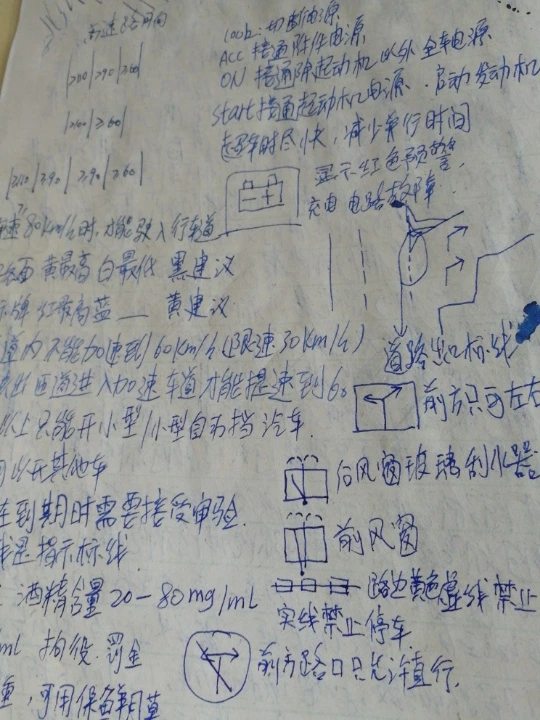 Lock: 切断电源
ACC 接通附件电源
ON 接通除起动机以外全车电源
Start接通起动机电源.启动发动机
超车时尽快,减少并行时间
≥110 ≥90 ≥60
≥90 ≥60
≥110 ≥90 ≥90 ≥60
显示红色预警.
充电电路故障.
速80km/h时,才能驶入行车道
路面 黄最高 白最低 黑建议
标牌 红最高蓝 — 黄建议
道内不能加速到60km/h(限速30km/h)
匝道进入加速车道才能提速到60
道路出口标线
以上只能开小型/小型自动挡汽车.
前方只可左右
可以开其他车
后风窗玻璃刮水器
在到期时需要接受审验.
前风窗
线是指示标线
酒精含量20-80mg/ml
路边黄色虚线禁止
实线禁止停车.
ml 拘役.罚金
前方路口只允许直行.
重,可用保鲜膜草